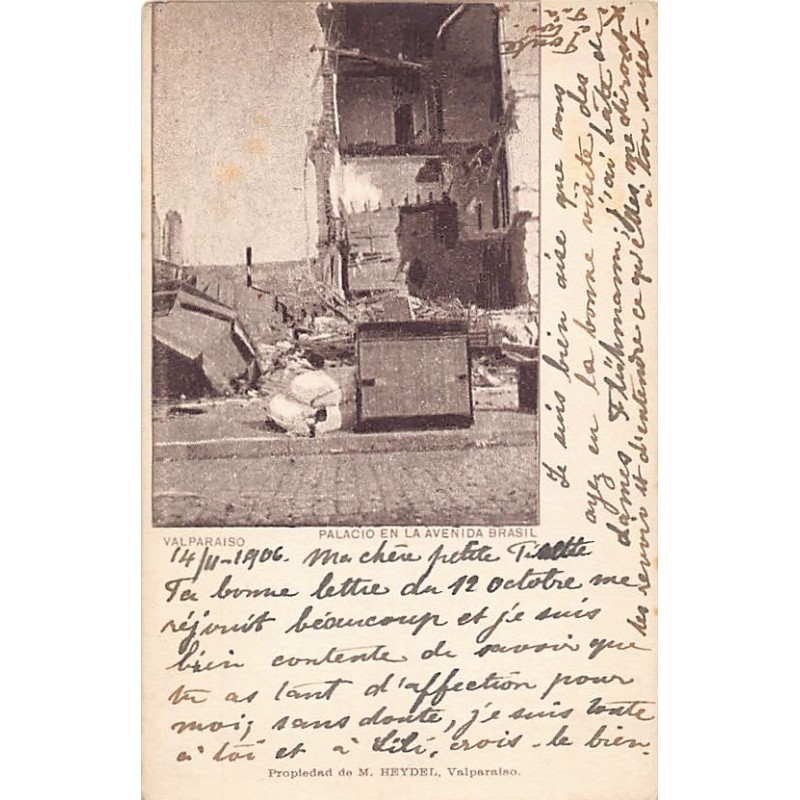 VALPARAISO
PALACIO EN LA AVENIDA BRASIL
14/11-1906. Ma chère petite
Ta bonne lettre du 12 octobre me
réjouit beaucoup et je suis
bien contente de savoir que
tu as tant d'affection pour
moi; sans doute, je suis toute
à toi et à Lili, crois-le bien.
Je suis bien aise que vous
ayez eu la bonne visite des
dames Flühmann, j'ai hâte de
les revoir et d'entendre ce qu'elles me diront
à ton sujet.
Propiedad de M. HEYDEL, Valparaiso.